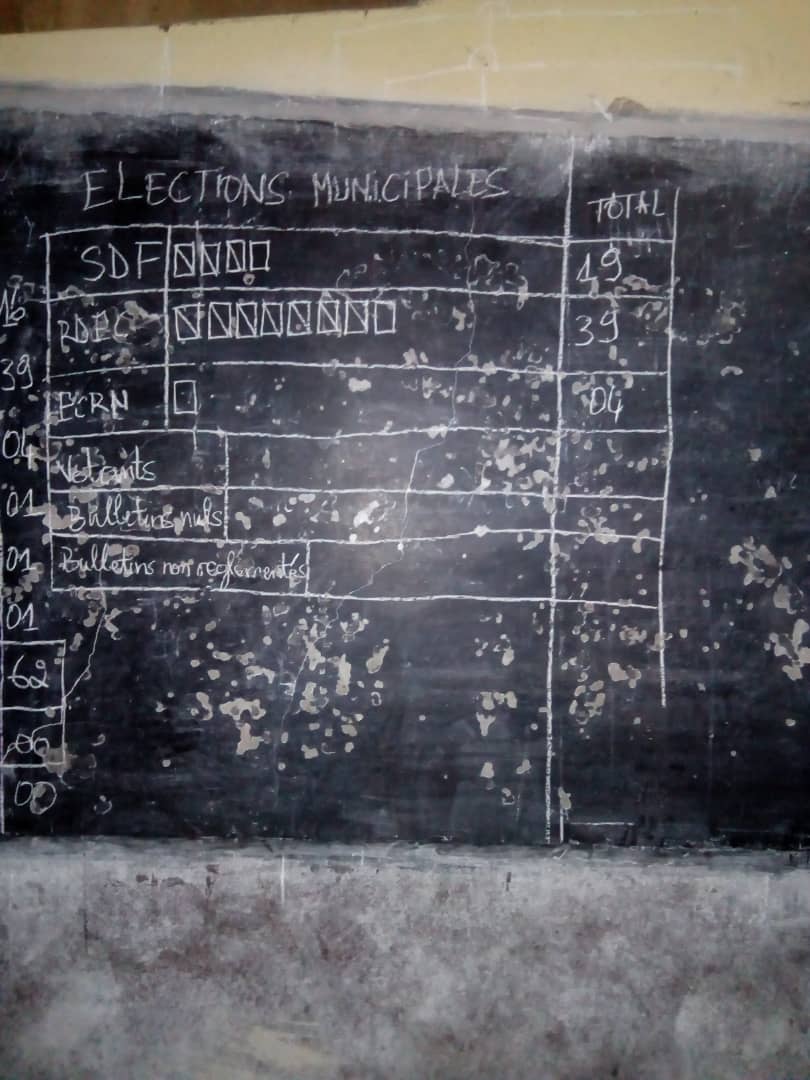 ELECTIONS MUNICIPALES TOTAL
SDF 19
RDPC 39
PCRN 04
Votants
Bulletins nuls
Bulletins non reglementés
39
04
01
01
01
62
00